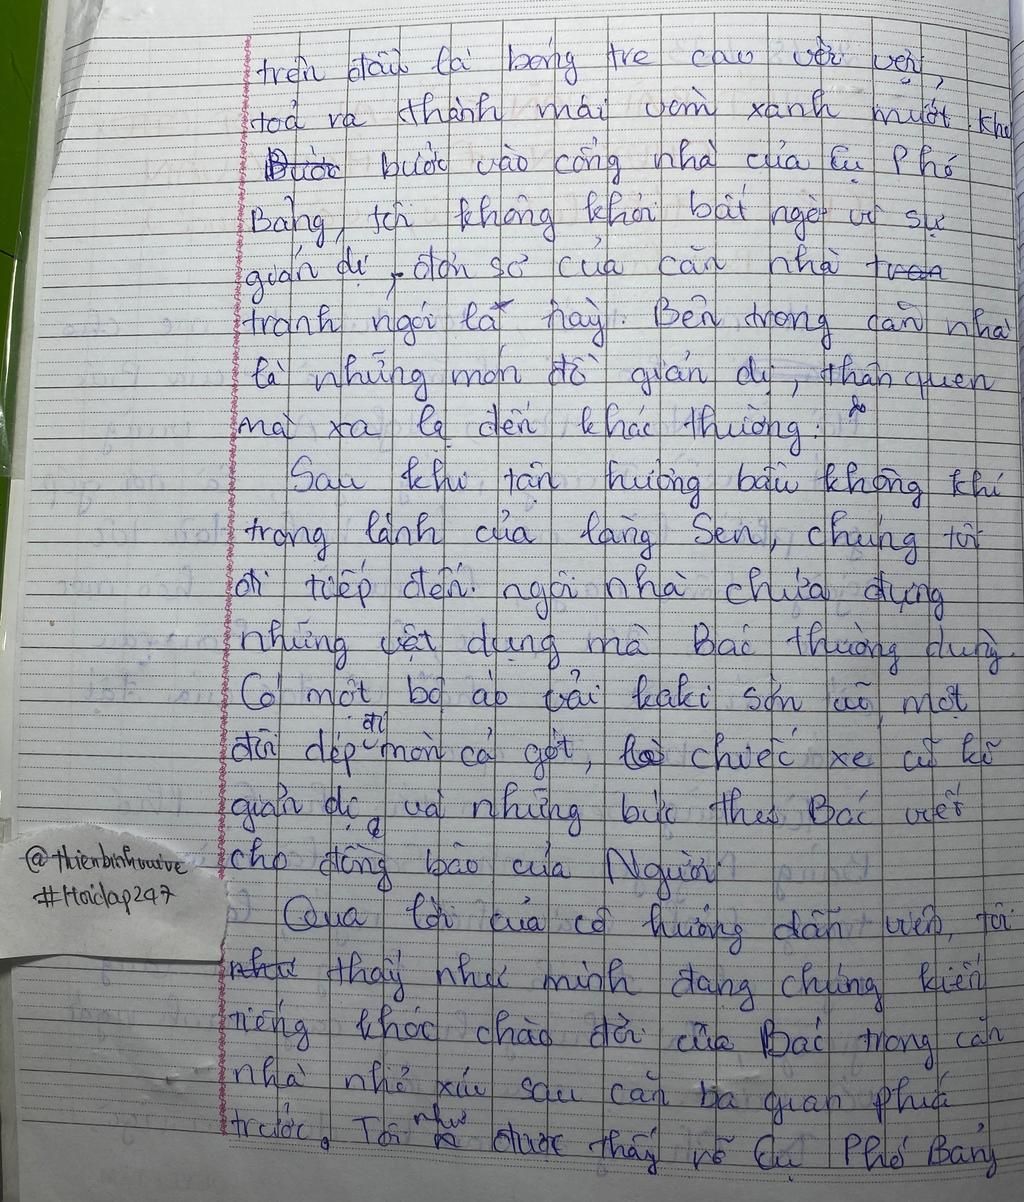 trên đầu là bóng tre cao vời vợi,
toả ra thành mái vòm xanh mướt. Khi
Bước bước vào cổng nhà của Cụ Phó
Bảng, tôi không khỏi bất ngờ vì sự
giản dị, đơn sơ của căn nhà tran
tranh ngói lá này. Bên trong căn nhà
là những món đồ giản dị, thân quen
mà xa lạ đến khác thường.
Sau khi tận hưởng bầu không khí
trong lành của làng Sen, chúng tôi
đi tiếp đến ngôi nhà chứa đựng
những vật dụng mà Bác thường dùng.
Có một bộ áo vải kaki sờn cũ, một
đôi dép đã mòn cả gót, chiếc xe cũ kĩ
giản dị và những bức thư Bác viết
cho đồng bào của Người.
@thienbinhvuive
#Hoidap247
Qua lời của cô hướng dẫn viên, tôi
như thấy như mình đang chứng kiến
tiếng khóc chào đời của Bác trong căn
nhà nhỏ xíu sau căn ba gian phía
trước. Tôi như được thấy rõ Cụ Phó Bảng